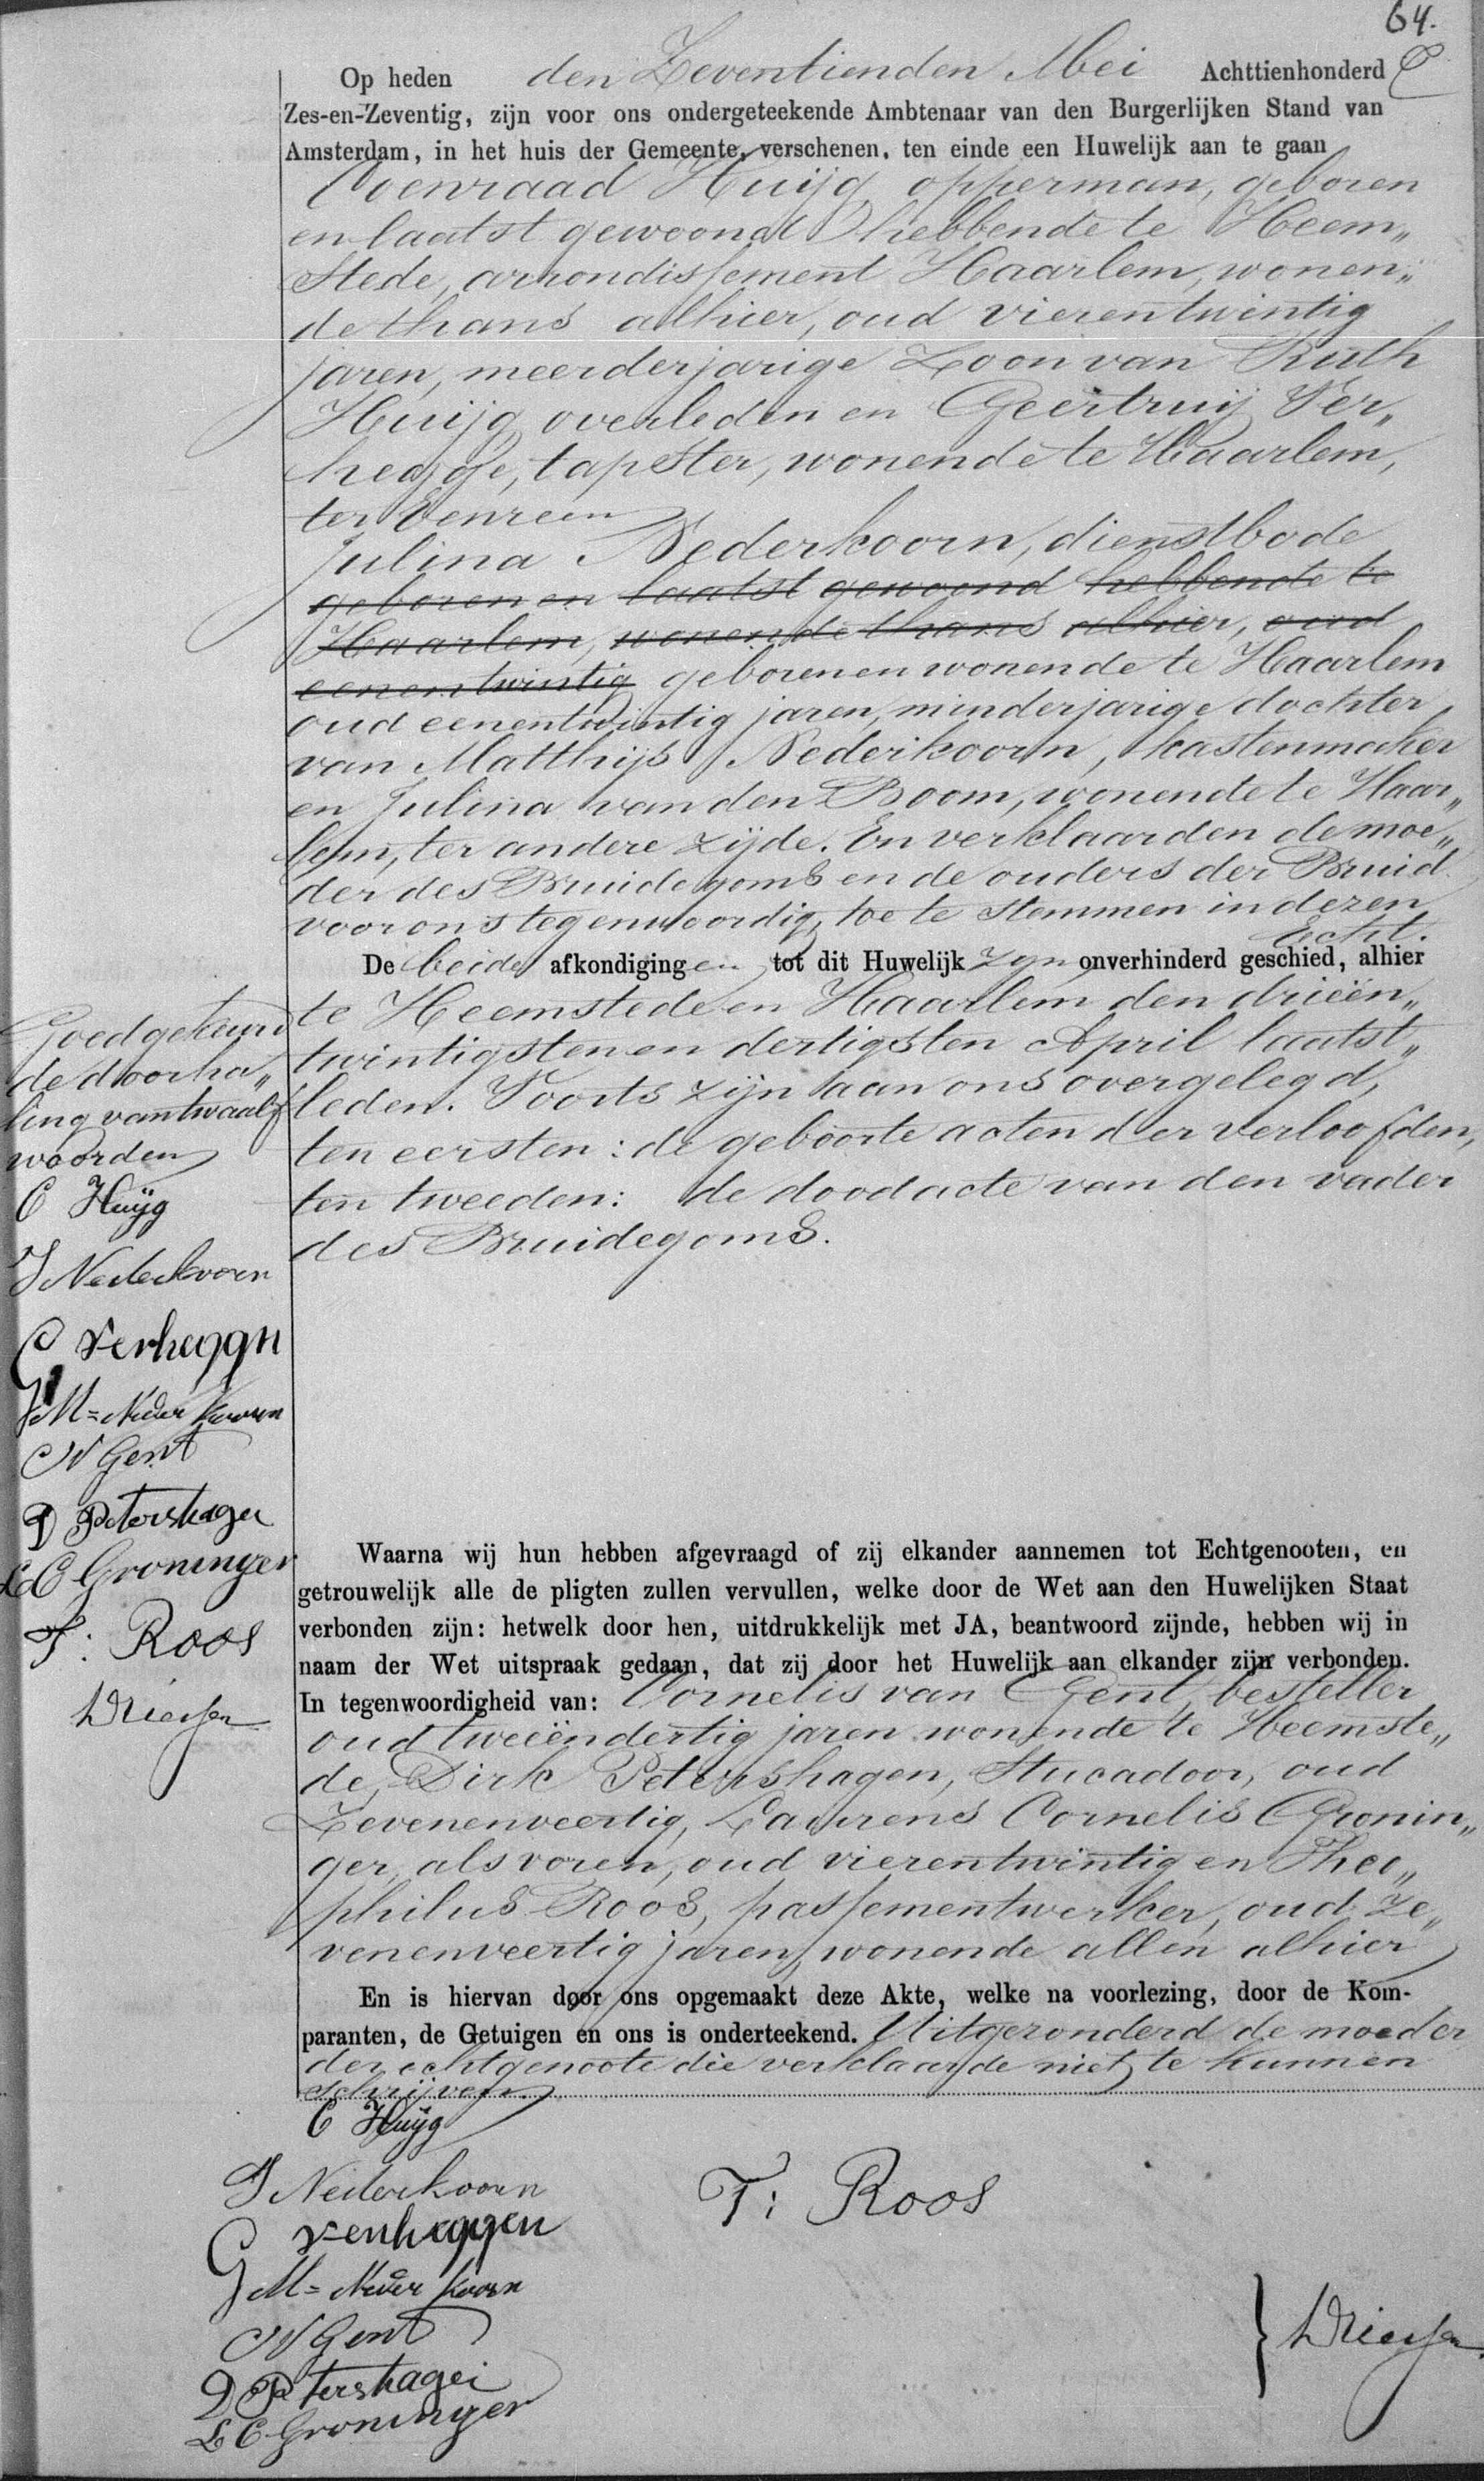 64.
Op heden den Zeventienden Mei Achttienhonderd
Zes-en-Zeventig, zijn voor ons ondergeteekende Ambtenaar van den Burgerlijken Stand van
Amsterdam, in het huis der Gemeente, verschenen, ten einde een Huwelijk aan te gaan
Coenraad Huijg, opperman, geboren
en laatst gewoond hebbende te Heem„
stede, arrondissement Haarlem, wonen„
de thans alhier, oud vierentwintig
jaren, meerderjarige Zoon van Ruth
Huijg, overleden en Geertruij Ver„
hegge, tapster, wonende te Haarlem,
ter Eenre en
Julina Nederkoorn, dienstbode
geboren en laatst gewoond hebbende te
Haarlem, wonende thans alhier, oud
eenentwintig geboren en wonende te Haarlem
oud eenentwintig jaren, minderjarige dochter
van Matthijs Nederkoorn, kastenmaker
en Julina van den Boom, wonende te Haar„
lem, ter andere zijde. En verklaarden de moe„
der des Bruidegoms en de ouders der Bruid
voor ons tegenwoordig, toe te stemmen in dezen
Echt.
De beide afkondigingen tot dit Huwelijk zijn onverhinderd geschied, alhier
te Heemstede en Haarlem den drieën„
twintigsten en dertigsten April laatst„
leden. Voorts zijn aan ons overgelegd,
ten eersten: de geboorte acten der verloofden,
ten tweeden: de doodacte van den vader
des Bruidegoms.
Goedgekeurd
de doorha„
ling van twaalf
woorden
C Huijg
J Nederkoorn
G Verheggn
M = Neder Koorn
CV Gent
D Petershagen
L C Groninger
T: Roos
Waarna wij hun hebben afgevraagd of zij elkander aannemen tot Echtgenooten, en
getrouwelijk alle de pligten zullen vervullen, welke door de Wet aan den Huwelijken Staat
verbonden zijn: hetwelk door hen, uitdrukkelijk met JA, beantwoord zijnde, hebben wij in
naam der Wet uitspraak gedaan, dat zij door het Huwelijk aan elkander zijn verbonden.
In tegenwoordigheid van: Cornelis van Gent, besteller
oud tweeëndertig jaren wonende te Heemste„
de, Dirk Petershagen, Stucadoor, oud
Zevenenveertig, Laurens Cornelis Gronin„
ger, als voren, oud vierentwintig en Theo„
philus Roos, passementwerker, oud ze„
venenveertig jaren, wonende allen alhier
En is hiervan door ons opgemaakt deze Akte, welke na voorlezing, door de Kom-
paranten, de Getuigen en ons is onderteekend. Uitgezonderd de moeder
der echtgenoote die verklaarde niet te kunnen
schrijven
C Huijg
J Nederkoorn
G Verheggen
M = Neder Koorn
CV Gent
D Petershagen
L C Groninger
T: Roos